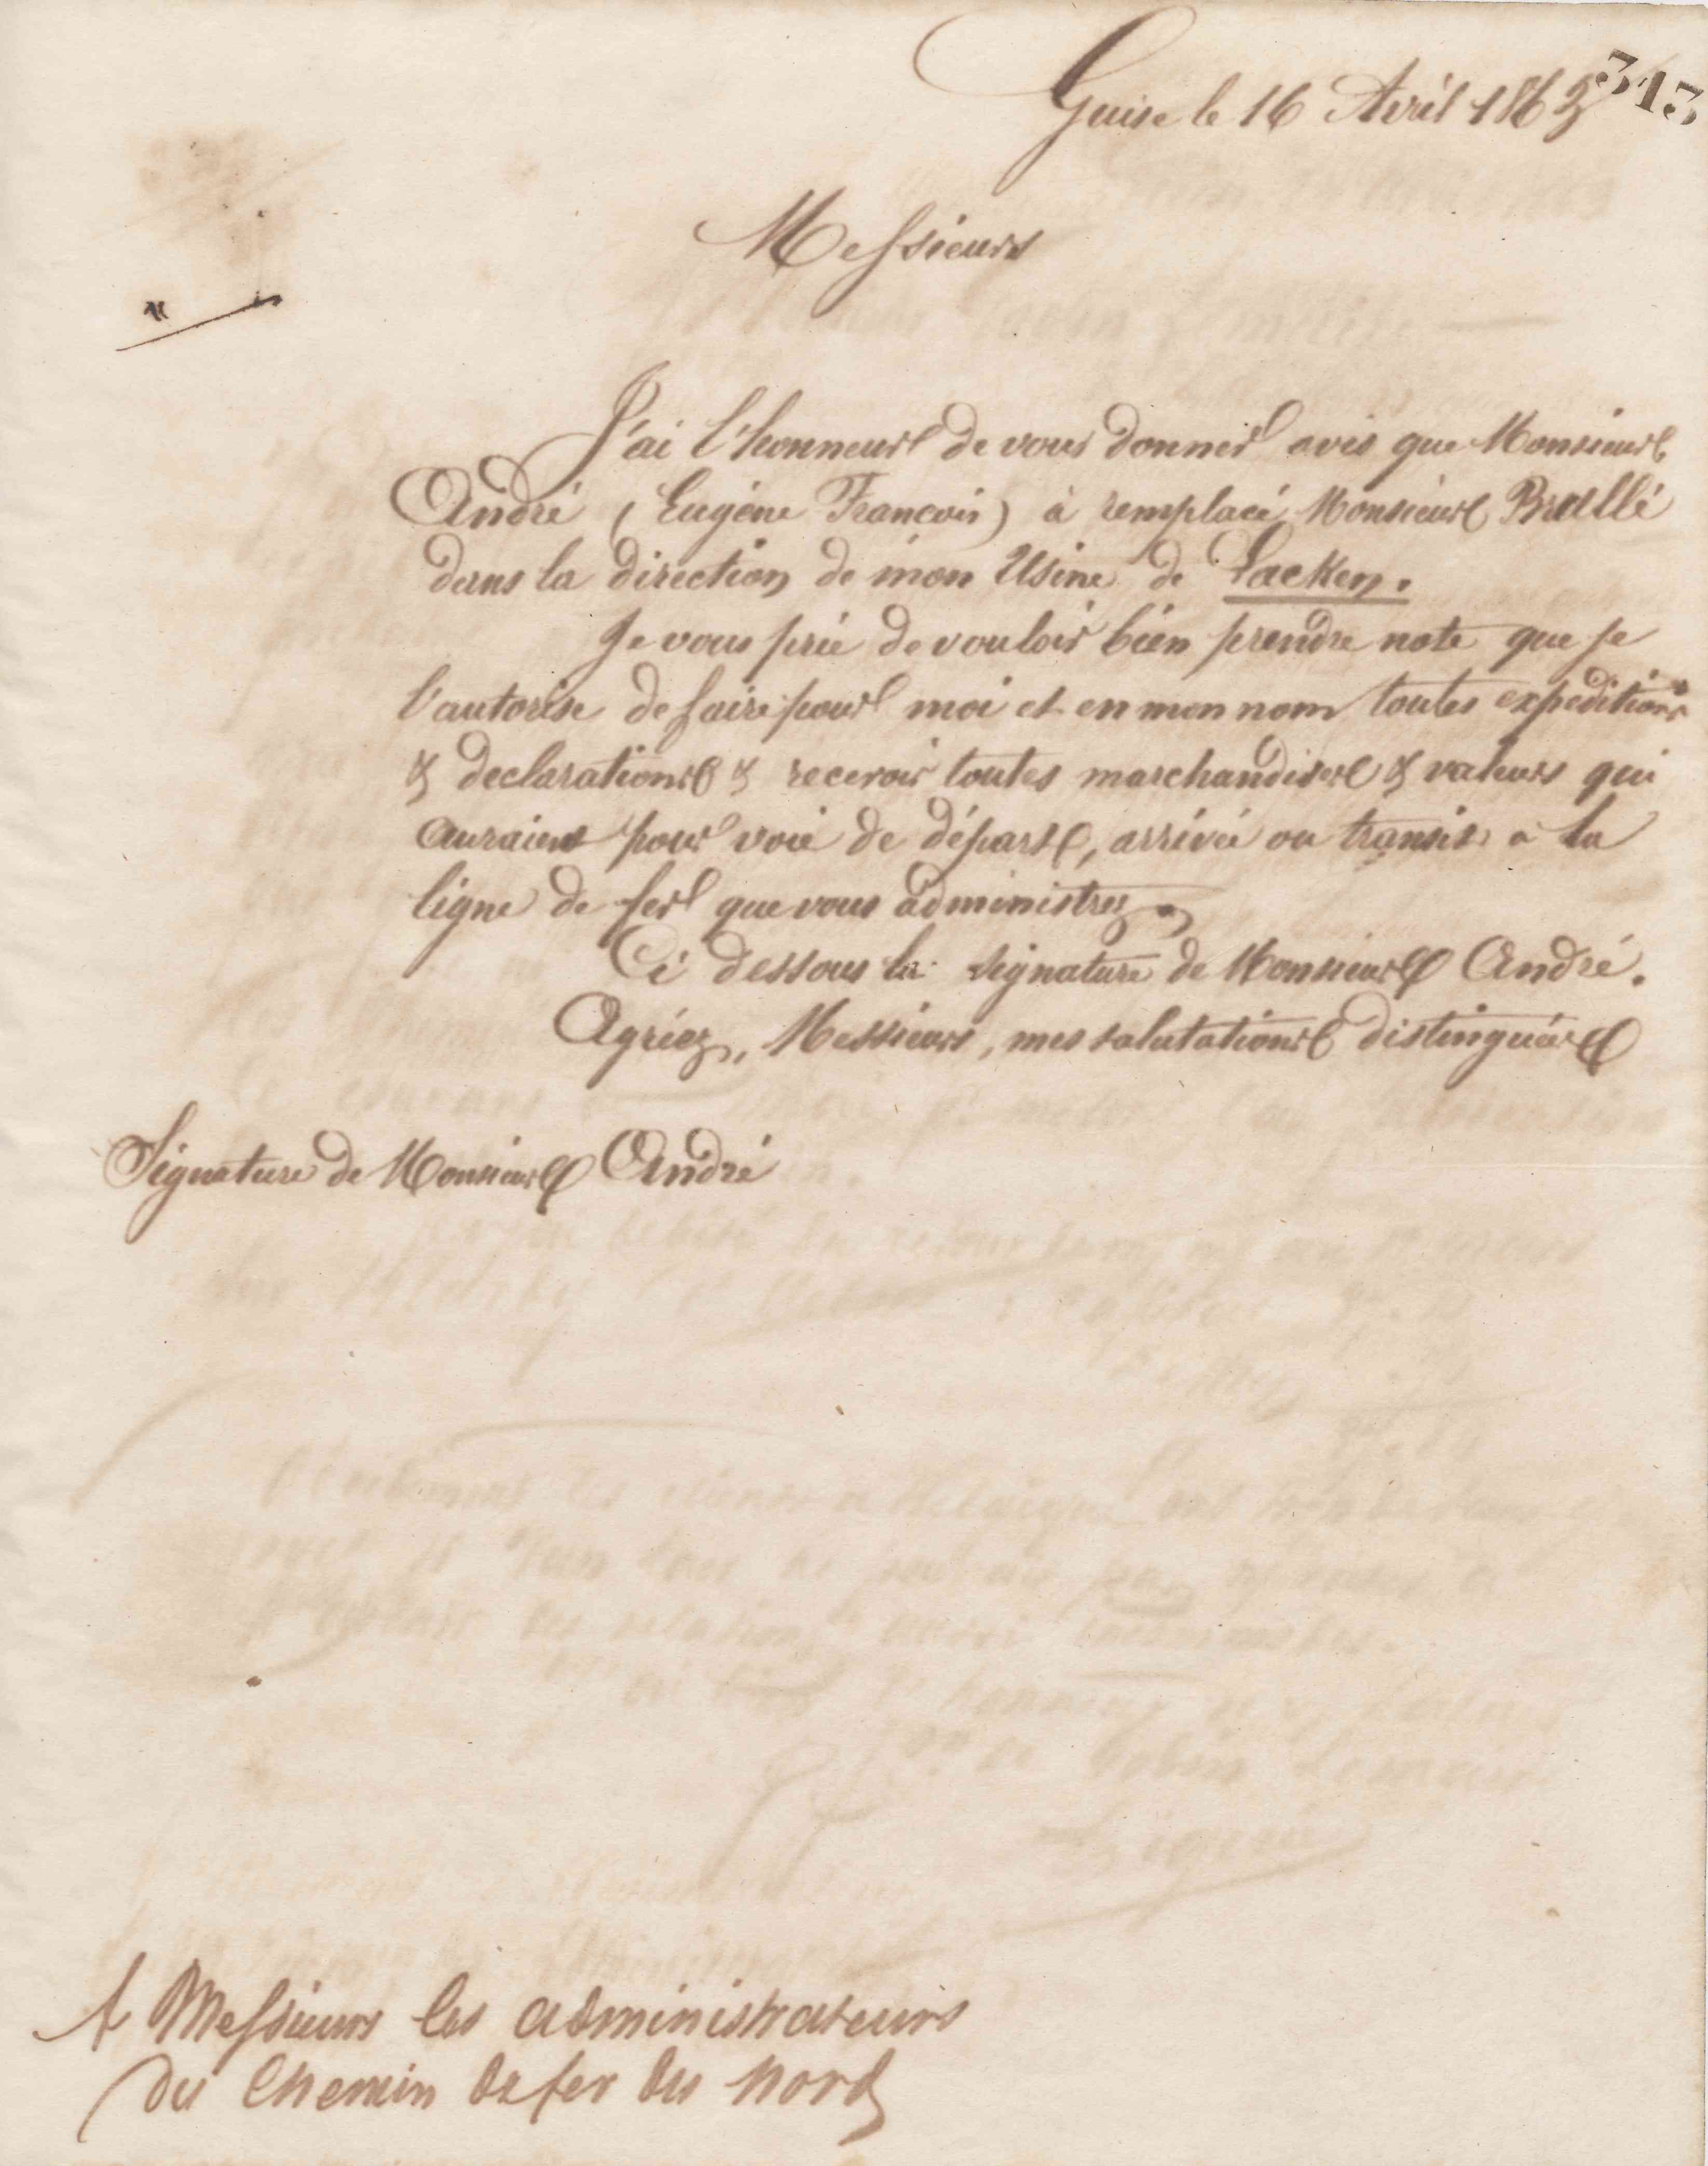 313
Guise le 16 Avril 1863
Messieurs
J'ai l'honneur de vous donner avis que Monsieur
André (Eugène François) à remplacé Monsieur Brullé
dans la direction de mon Usine de Laeken.
Je vous prie de vouloir bien prendre note que je
l'autorise de faire pour moi et en mon nom toutes expéditions
& declarations & recevoir toutes marchandises & valeurs qui
auraient pour voie de départ, arrivée ou transit a la
ligne de fer que vous administrez.
Ci dessous la signature de Monsieur André.
Agréez, Messieurs, mes salutations distinguées
Signature de Monsieur André
A Messieurs les administrateurs
du Chemin de fer du Nord